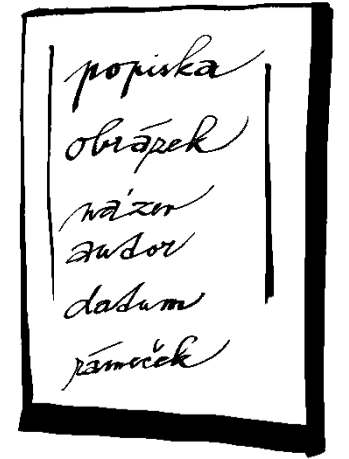 popiska
obrázek
název
autor
datum
rámeček